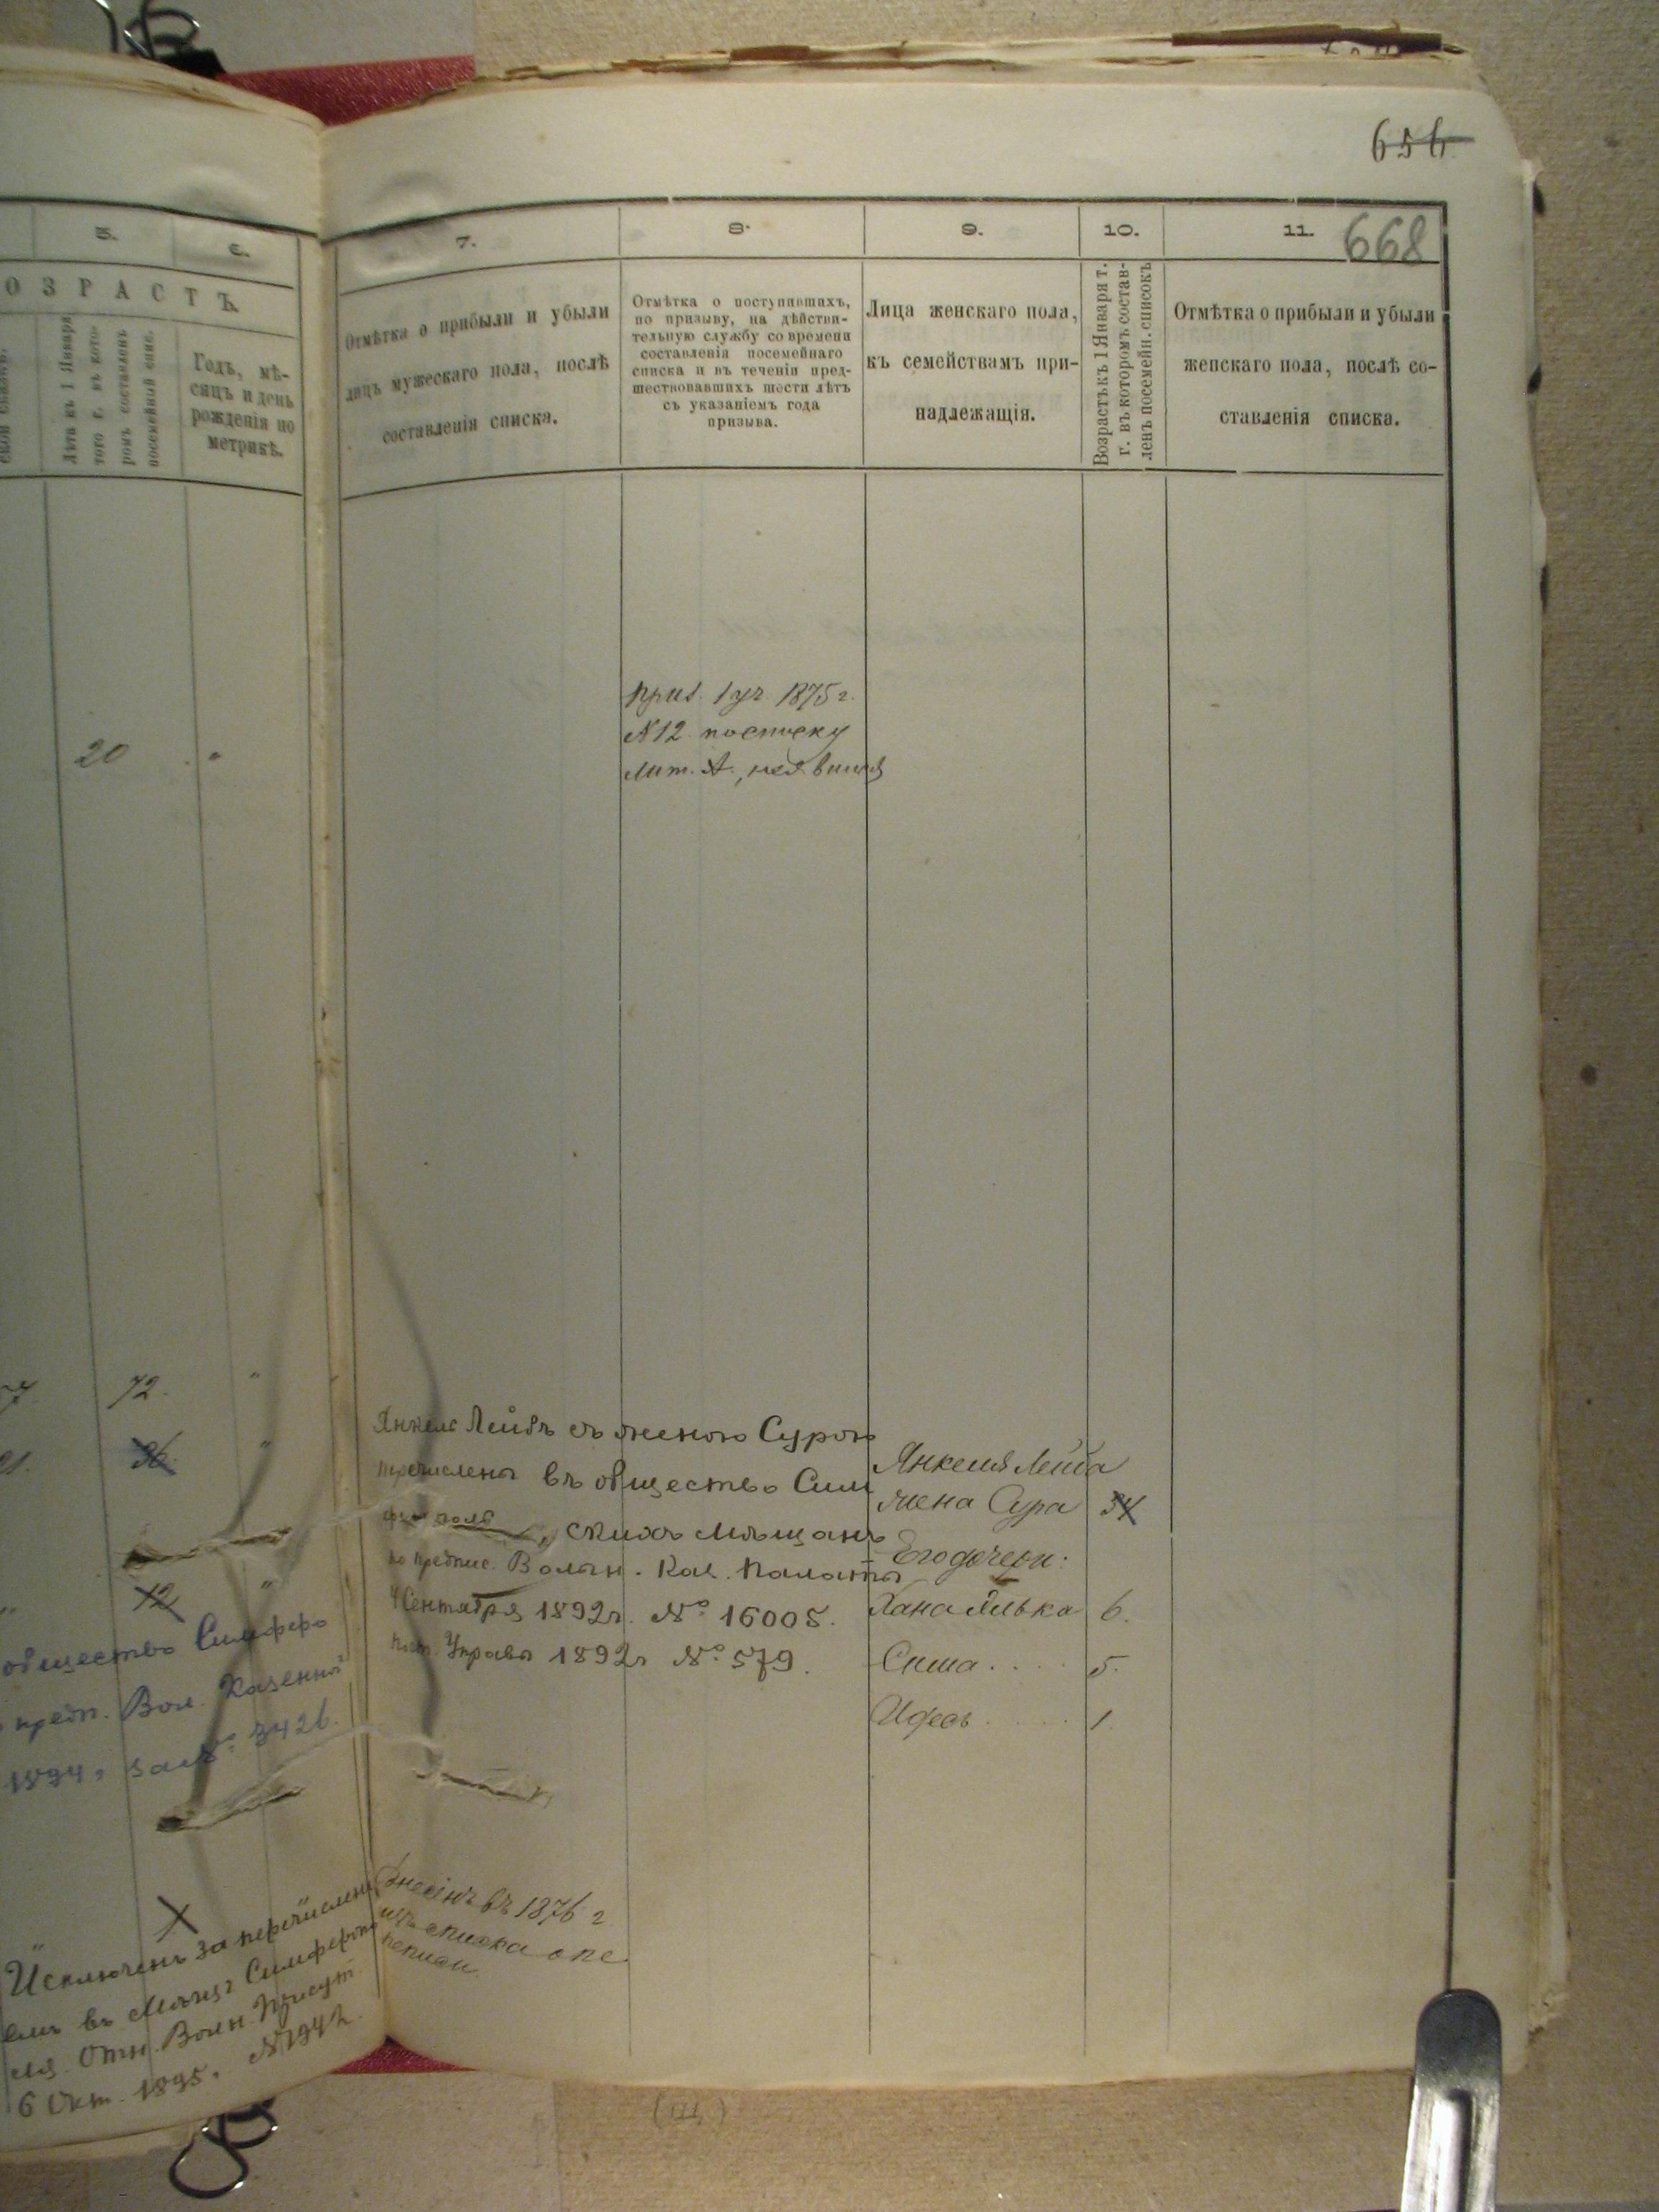 656
668
5.
6.
ОЗРАСТЪ.
Лѣта къ 1 Января
того г. въ кото-
ромъ составленъ
посемейный спис.
Годъ, мѣ-
сяцъ и день
рожденія по
метрикѣ.
7.
8.
9.
10.
11.
Отмѣтка о прибыли и убыли
лицъ мужескаго пола, послѣ
составленія списка.
Отмѣтка о поступившихъ,
по призыву, на дѣйстви-
тельную службу со времени
составленія посемейнаго
списка и въ теченіи пред-
шествовавшихъ шести лѣтъ
съ указаніемъ года
призыва.
Лица женскаго пола,
къ семействамъ при-
надлежащія.
Возрастъ къ 1 Января т.
г. въ которомъ состав-
ленъ посемейн. списокъ
Отмѣтка о прибыли и убыли
женскаго пола, послѣ со-
ставленія списка.
20 "
приз. 1 уч. 1875 г.
№12 по списку
Лит. А.,
72. "
36. "
12 "
общество Симферо
предп. Вол. Казенной
1894, за №: 3426.
Янкель Лейбъ съ женою Сурою
перечислены въ общество Сим
скихъ мѣщанъ
по предпис. Волын. Каз. Палаты
Сентября 1892г. № 16005.
Управы 1892г № 579.
Янкеля Лейба
жена Сура 34
Его дочери:
Хана 6.
Сима .... 5.
Идесь .... 1.
X
Исключенъ за перечислені
емъ въ Мѣщ. Симферопо
ля. Отн. Воин. Присут.
6 Окт. 1895. № 1942.
Внесенъ въ 1876 г
изъ списка о пе
реписи